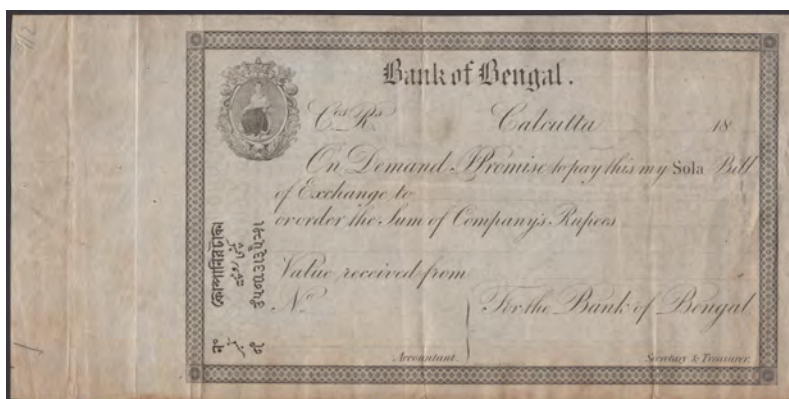 Bank of Bengal.
Cos. Rs. Calcutta 18
On Demand I Promise to pay this my Sola Bill
of Exchange to
or order the Sum of Company's Rupees
Value received from
No. For the Bank of Bengal
Accountant. Secretary & Treasurer.